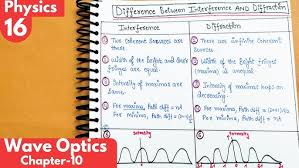 Physics
16
Difference Between Interference And Diffraction
Interference
Diffraction
① Two coherent sources are there
① There are infinite coherent sources
② Width of the bright and dark fringes are equal
② Width of the bright and dark fringes
③ Intensity of maximas are same
③ Intensity of maximas goes on decreasing
④ For maxima, Path diff = nλ
④ For minima, Path diff = nλ
⑤ For minima, Path diff
⑤ For maxima, Path diff
⑥ Intensity
⑥ Intensity
Wave Optics
Chapter-10